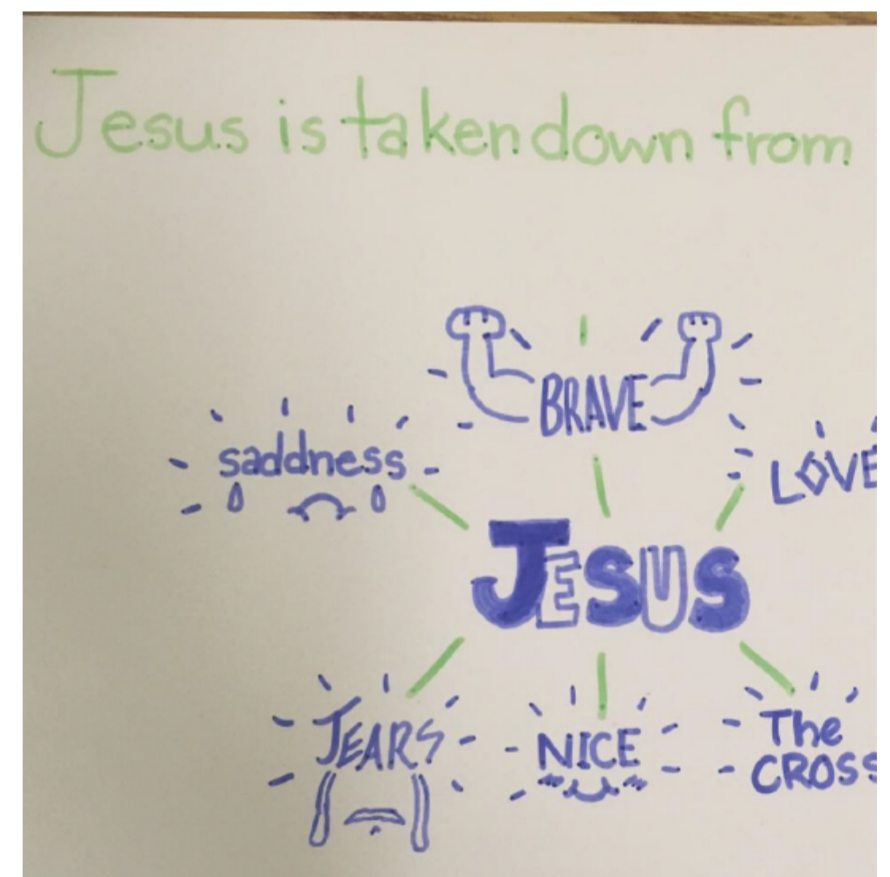 Jesus is taken down from
BRAVE
saddness
LOVE
JESUS
JEARS
NICE
The
CROSS